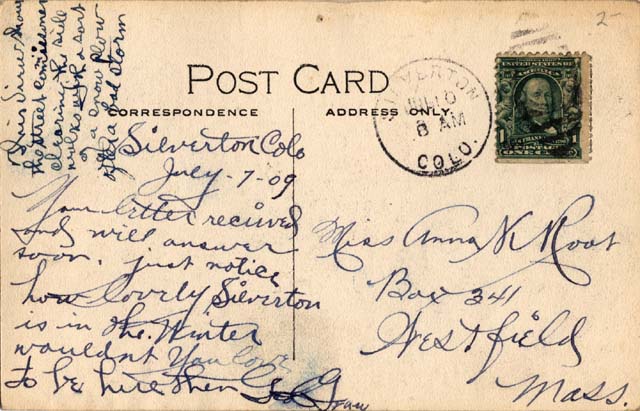 This View show
the street comissioner
clearing the side
walks with a sort
of a snow plow
after a bad storm
2-
POST CARD
CORRESPONDENCE
ADDRESS ONLY.
SILVERTON
JUL 10
8 AM
COLO.
UNITED STATES OF
AMERICA
1
1
POSTAGE
ONE CENT
Silverton Colo
July-7-09
Your letter recived
and will answer
soon. just notice
how lovely Silverton
is in the Winter
wouldnt You love
to be here then
Miss Anna K Root
Box 341
Westfield
Mass.